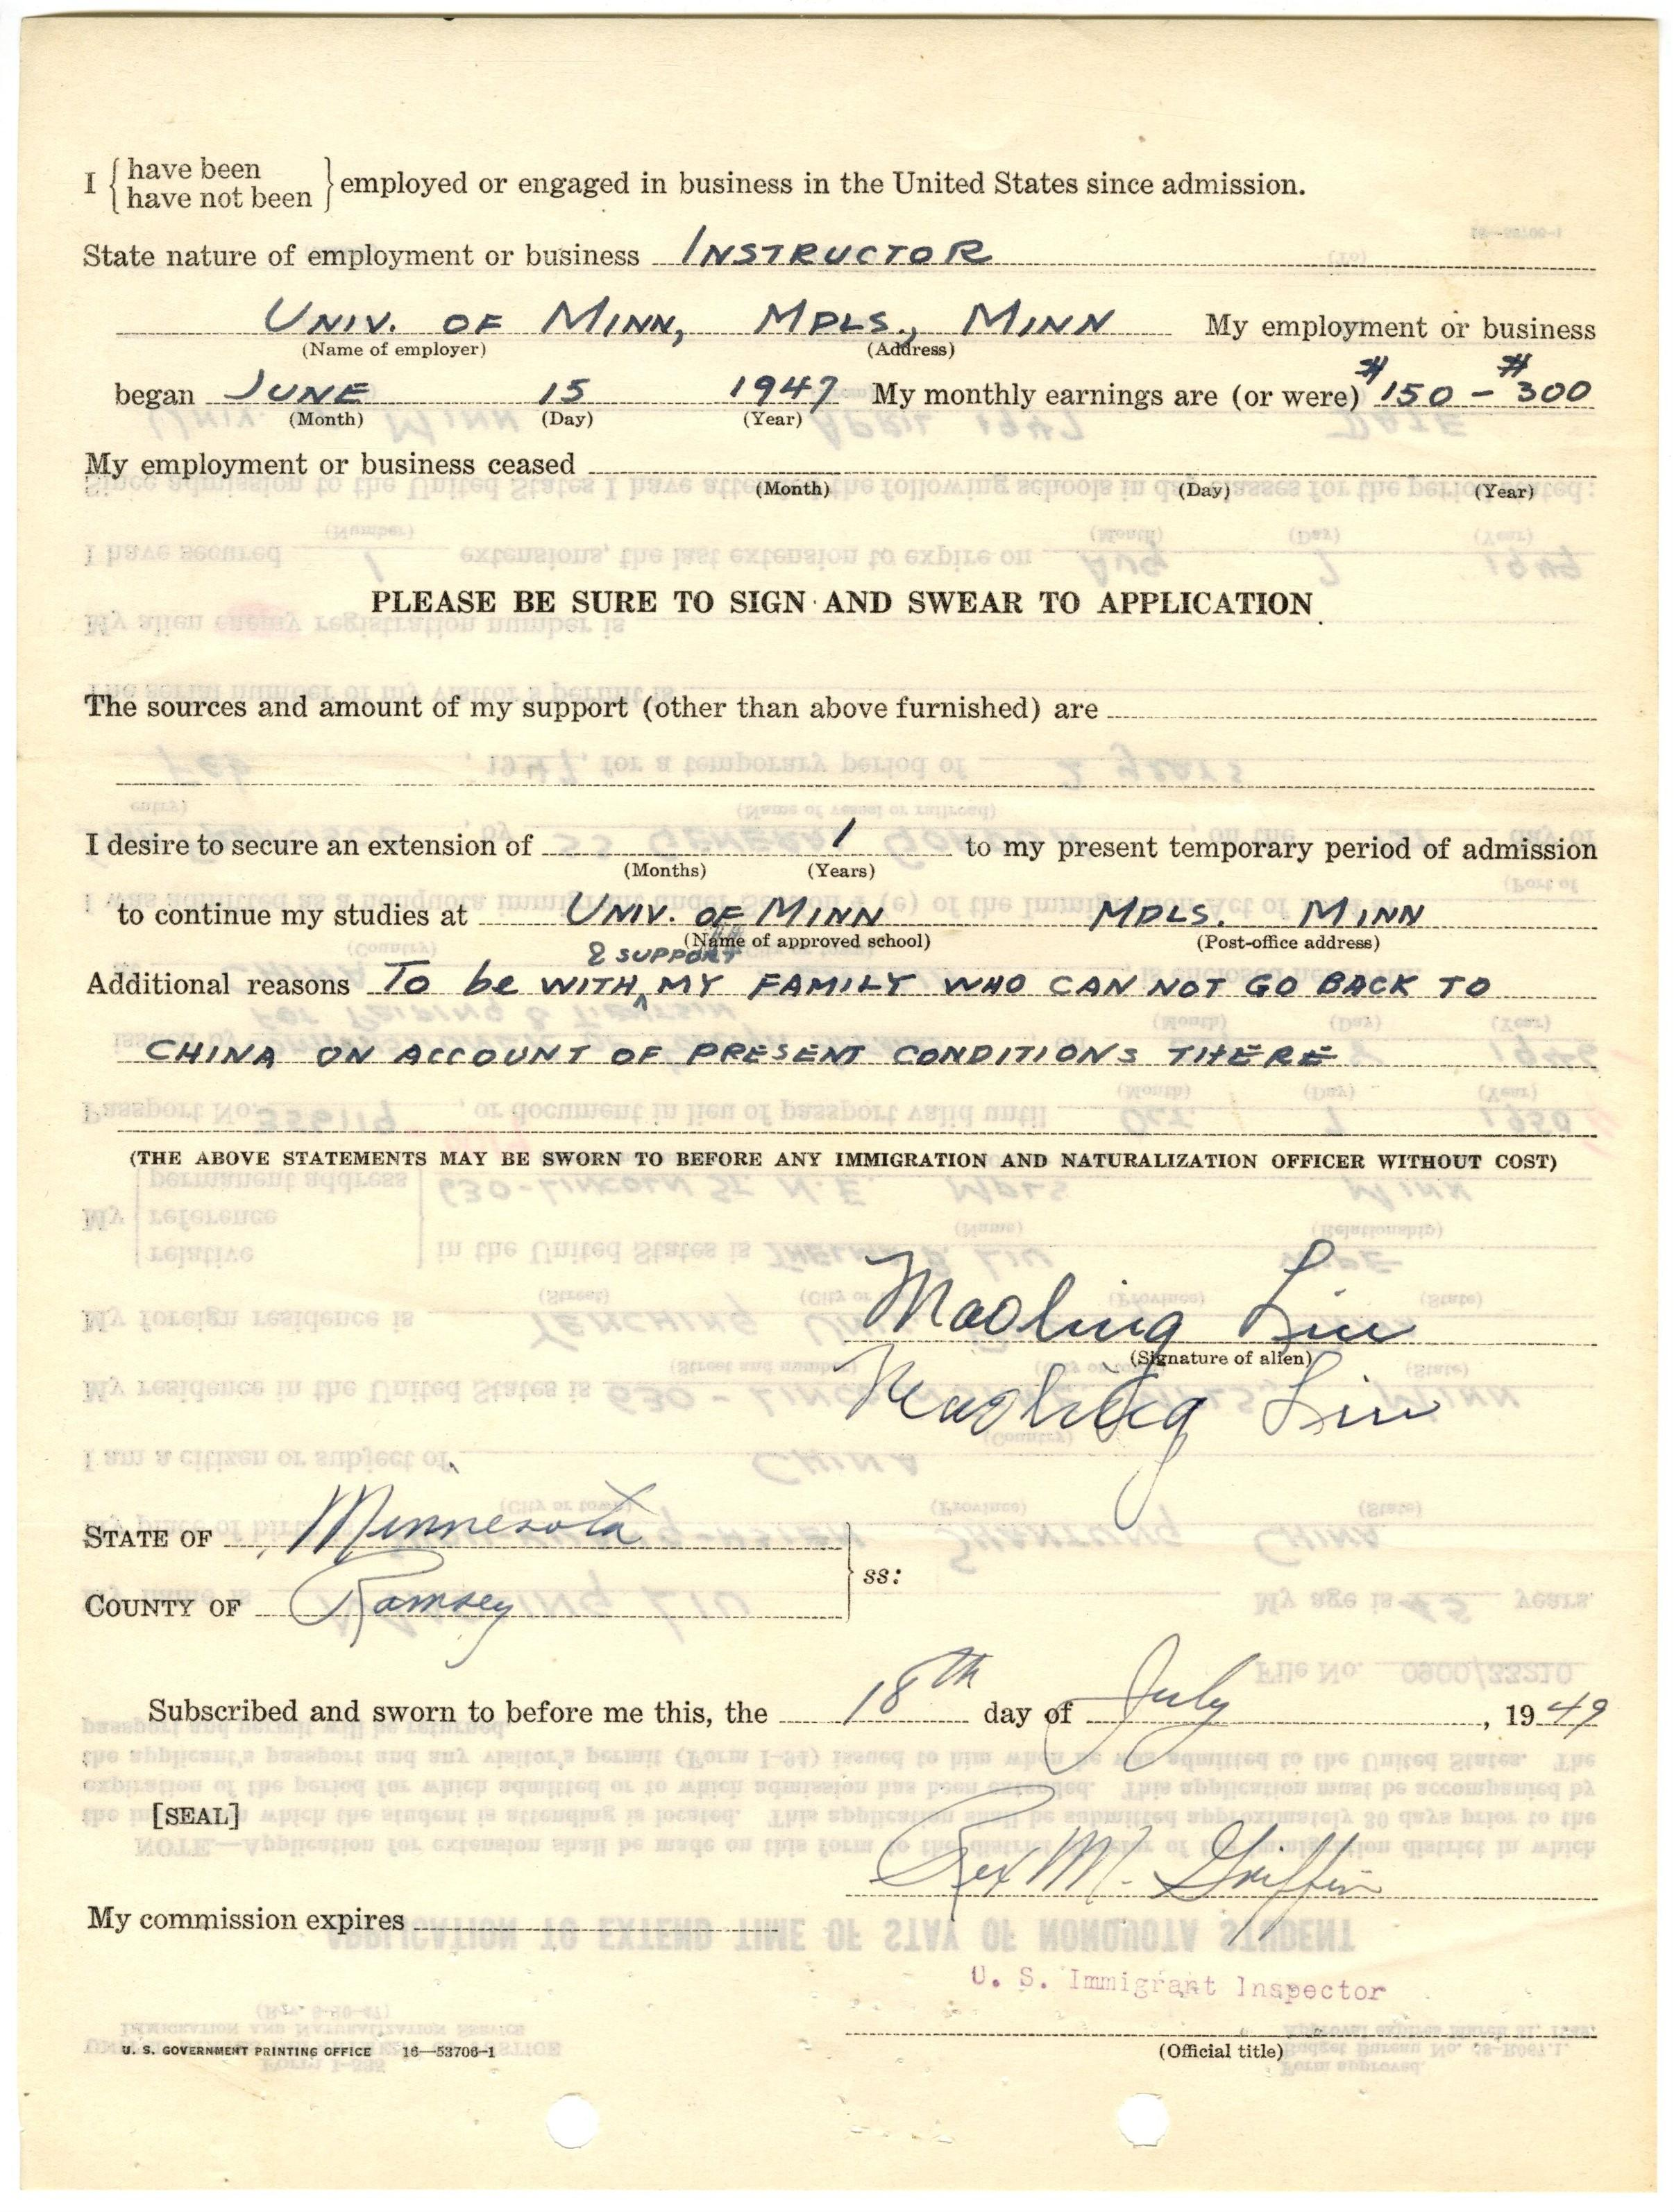 I { have been
have not been } employed or engaged in business in the United States since admission.
State nature of employment or business INSTRUCTOR
UNIV. OF MINN, MPLS., MINN My employment or business
(Name of employer) (Address)
began JUNE 15 1947 My monthly earnings are (or were) $150 - $300
(Month) (Day) (Year)
My employment or business ceased
(Month) (Day) (Year)
PLEASE BE SURE TO SIGN AND SWEAR TO APPLICATION
The sources and amount of my support (other than above furnished) are
I desire to secure an extension of 1 to my present temporary period of admission
(Months) (Years)
to continue my studies at UNIV. OF MINN MPLS. MINN
(Name of approved school) (Post-office address)
& SUPPORT
Additional reasons To be WITH ^ MY FAMILY WHO CAN NOT GO BACK TO
CHINA ON ACCOUNT OF PRESENT CONDITIONS THERE
(THE ABOVE STATEMENTS MAY BE SWORN TO BEFORE ANY IMMIGRATION AND NATURALIZATION OFFICER WITHOUT COST)
Maoling Liu
(Signature of alien)
Maoling Liu
STATE OF Minnesota
ss:
COUNTY OF Ramsey
Subscribed and sworn to before me this, the 18th day of July, 1949
[SEAL]
Rex M. Griffin
My commission expires
U. S. Immigrant Inspector
U. S. GOVERNMENT PRINTING OFFICE 16—53706-1 (Official title)